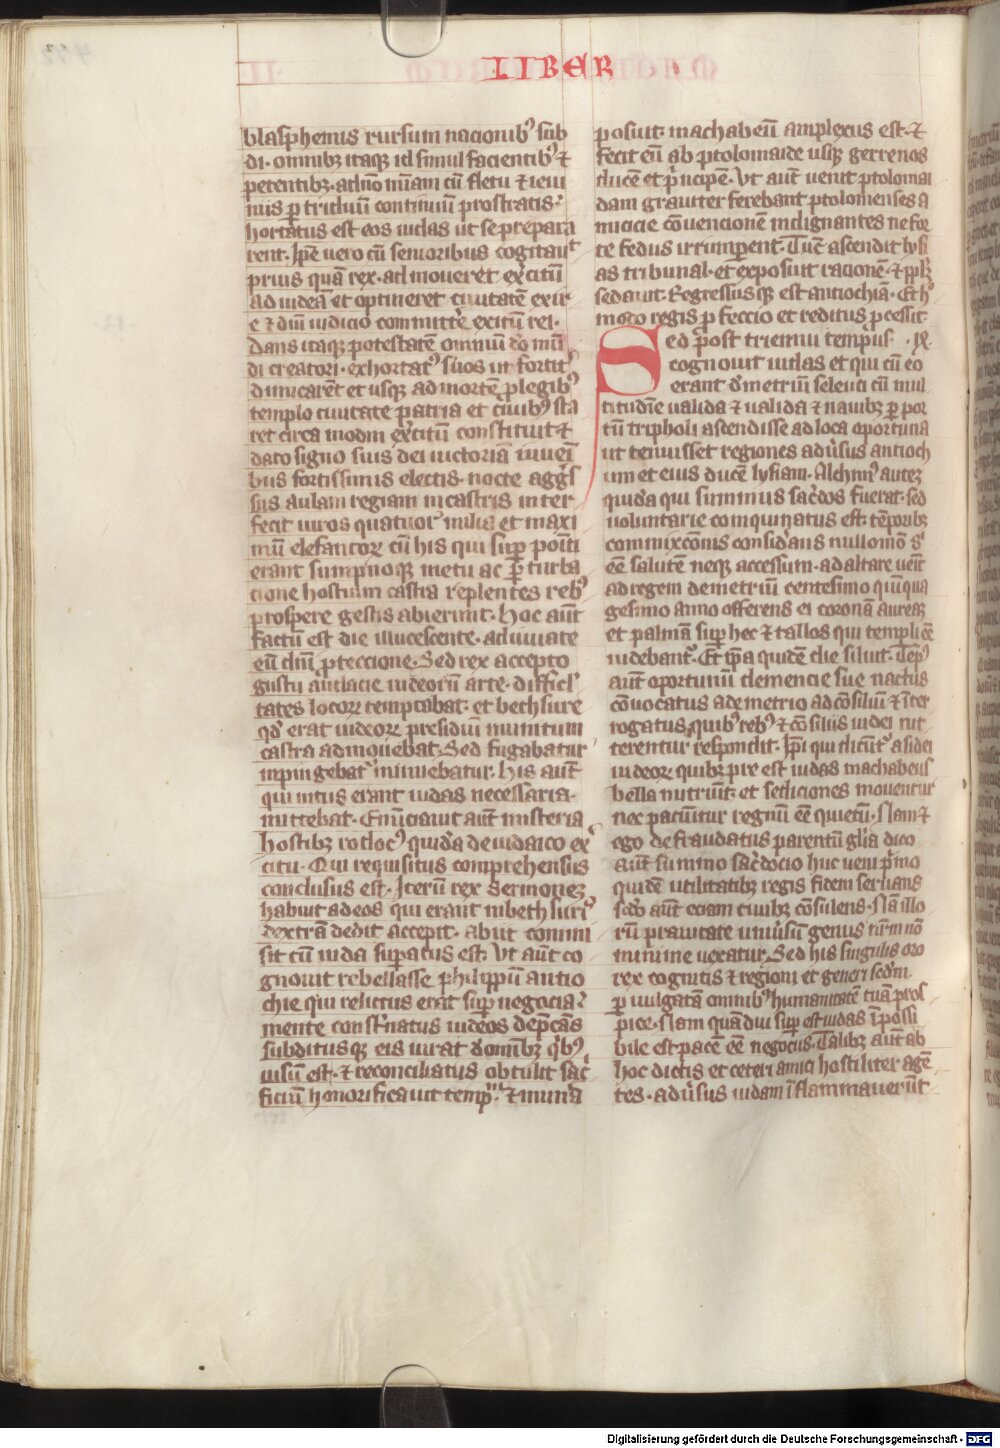 LIBER
blasphemis rursum nacionibꝰ sub
di· omnibꝫ itaqꝫ id simul facientibꝰ ⁊
petentibꝫ· a dn̄o mīam cū fletu ⁊ ieiu
niis ꝑ triduū continuū prostratis·
hortatus est eos iudas ut se prepara
rent· Ip̄e uero cū senioribus cogitauit
prius quā rex· admoueret exˀcitū
ad iudeā et optineret ciuitatē exir
e ⁊ dn̄i iudicio committˀe exitū rei·
Dans itaqꝫ potestatē omniū dō mū
di creatori· exhortatꝰ suos ut fortitˀ
dimicarēt et usqꝫ ad mortē ꝓ legibꝰ
templo ciuitate patria et ciuibꝰ sta
rēt circa modin exˀcitū constituit ⁊
dato signo suis dei uictoriā iuueī
bus fortissimis electis· nocte aggˀs
sus aulam regiam in castris inter
fecit uiros quatuor milia et maxi
mū elefantoꝝ cū his qui suꝑ positi
erant summoqꝫ metu ac ꝑturba
cione hostium castra replentes rebꝰ
prospere gestis abierunt· Hoc aūt
factū est die illucescente· adiuuāte
eū dn̄i ꝓteccione· Sed rex accepto
gustu audacie iudeorū arte· difficl
tates locoꝝ temptabat· et bethsure
qd̄ erat iudeoꝝ presidiū munitum
castra admouebat· Sed fugabatur
inpingebatˀ minuebatur· His aūt
qui intus erant iudas necessaria·
mittebat· Enūciauit aūt misteria
hostibꝫ rodocꝰ quidā de iudaico exˀ
citu· Qui requisitus comprehensus
conclusus est· Iterū rex sermoneꝫ
habuit ad eos qui erant in bethsurꝭ
dextrā dedit accepit· abiit commi
sit cū iuda suꝑatus est· Vt aūt co
gnouit rebellasse philippū antio
chie qui relictus erat suꝑ negocia·
mente constˀnatus iudeos dep̄cās
subditusqꝫ eis iurat d̄ omībꝫ qˀbꝰ
iusū est· ⁊ reconciliatus obtulit sac
ficiū honorificauit temp̄· ⁊ munˀa
posuit· machabeū amplexus est· ⁊
fecit eū ab ptolomaide usqꝫ gerrenos
ducē et pˀncipē· Vt aūt uenit ptolomai
dam grauiter ferebant ptolomenses a
micicie cōuencionem indignantes ne for
te fedus irrumperent· Tūc ascendit lysi
as tribunal· et exposuit racionē· ⁊ pp̄lꝫ
sedauit· Regressusqꝫ est antiochiā· Et hˀ
moto regis ꝓfeccio et reditus ꝓcessit·
Sed post triennii tempus· ·IX·
cognouit iudas et qui cū eo
erant dˀmetriū seleuci cū mul
titudīe ualida ⁊ ualida ⁊ nauibꝫ ꝑ por
tū tripholi ascendisse ad loca oportuna
ut tenuisset regiones aduˀsus antioch
um et eius ducē lysiam· Alchimꝰ auteꝫ
quidā qui summus sacˀdos fuerat· sed
uoluntarie coinquinatus est· tēporibꝫ
commixcōnis considˀans nullo mō sˀ
eē salutē neqꝫ accessum· ad altare uēit
ad regem demetriū centesimo quīqua
gesimo anno offerens ei coronā aureaꝫ
et palmā suꝑ hec ⁊ tallos qui templi eē
uidebantˀ· Et ip̄a quidē die siluit· Tēpꝰ
aūt oportunū clemencie sue nactus
cōuocatus a demetrio ad cōsiliū ⁊ īter
rogatus quibꝰ rebꝰ ⁊ cōsiliis iudei nit
terentur respondit· Ip̄i qui dicūtˀ asidei
iudeoꝝ quibꝫ p̄re est iudas machabeus
bella nutriūt· et sediciones mouentur
nec patiūtur regnū eē quietū· Nam ⁊
ego defraudatus parentū gl̄ia dico
aūt summo sacˀdocio huc ueni pˀmo
quidē utilitatibꝫ regis fidem seruans
scd̄o aūt eciam ciuibꝫ cōsulens· Nā illo
rū prauitate uniuˀsū genus n̄rm nō
minime uexatur· Sed his singulis oro
rex cognitis ⁊ regioni et generi sedm̄
ꝑuulgatā omnibꝰ humanitatē tuā pros
pice· Nam quādiu suꝑ est iudas īpossi
bile est pacē eē negociis· Talibꝫ aūt ab
hoc dictis et ceteri amici hostiliter agē
tes· aduˀsus iudam īflammauerūt
Digitalisierung gefördert durch die Deutsche Forschungsgemeinschaft - DFG